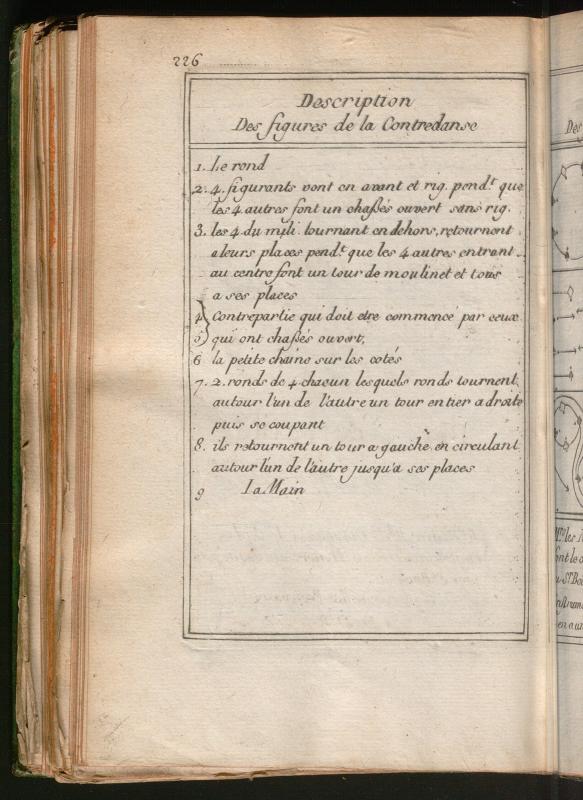 226
Description
Des figures de la Contredanse
1. Le rond
2. 4. figurants vont en avant et rig. pend.t que
les 4 autres font un chaßés ouvert sans rig.
3. les 4 du mili. tournant en dehors, retournent
a leurs places pend.t que les 4 autres entrant
au centre font un tour de moulinet et tous
a ses places
4 Contrepartie qui doit etre commencé par ceux
5 qui ont chaßés ouvert,
6 la petite chaine sur les cotés
7. 2. ronds de 4 chacun lesquels ronds tournent
autour l'un de l'autre un tour entier a droite
puis se coupant
8. ils retournent un tour a gauche en circulant
autour l'un de l'autre jusqu'a ses places
9 La Main
Des
les